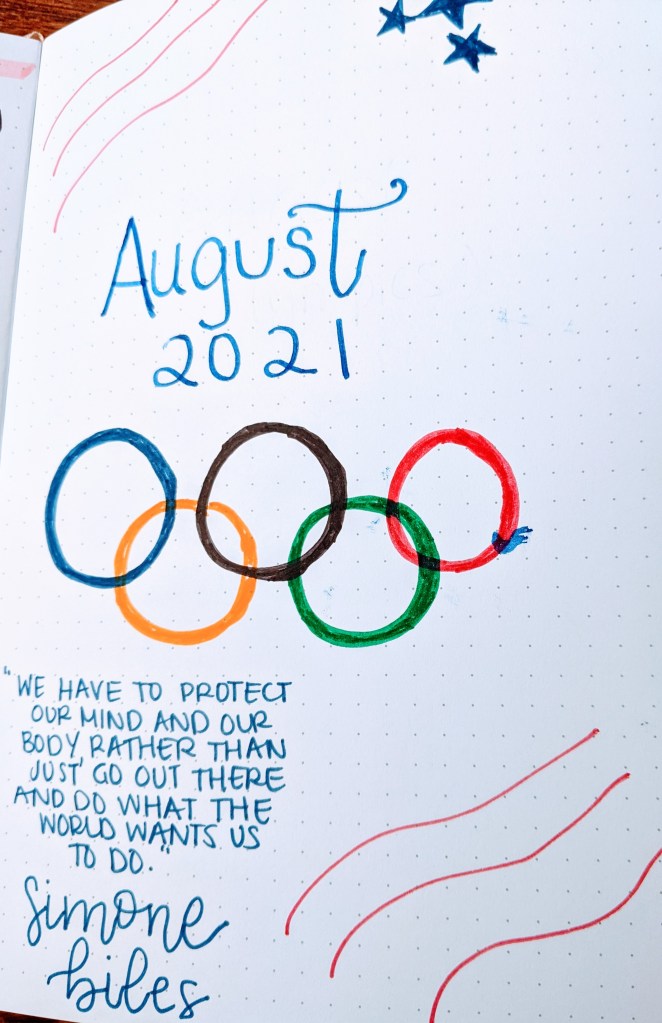 August
2021
"WE HAVE TO PROTECT
OUR MIND AND OUR
BODY RATHER THAN
JUST GO OUT THERE
AND DO WHAT THE
WORLD WANTS US
TO DO."
Simone
biles